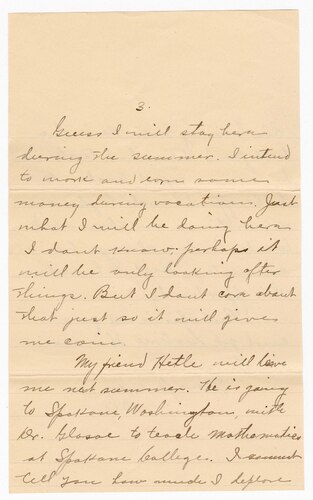 3.
Guess I will stay here
during the summer. I intend
to work and earn some
money during vacation. Just
what I will be doing here
I dont know. perhaps it
will be only looking after
things. But I dont care about
that just so it will give
me coin.
My friend Hetle will leave
me next summer. He is going
to Spokane, Washington, with
Dr. Glasoe to teach Mathematics
at Spokane College. I cannot
tell you how much I deplore